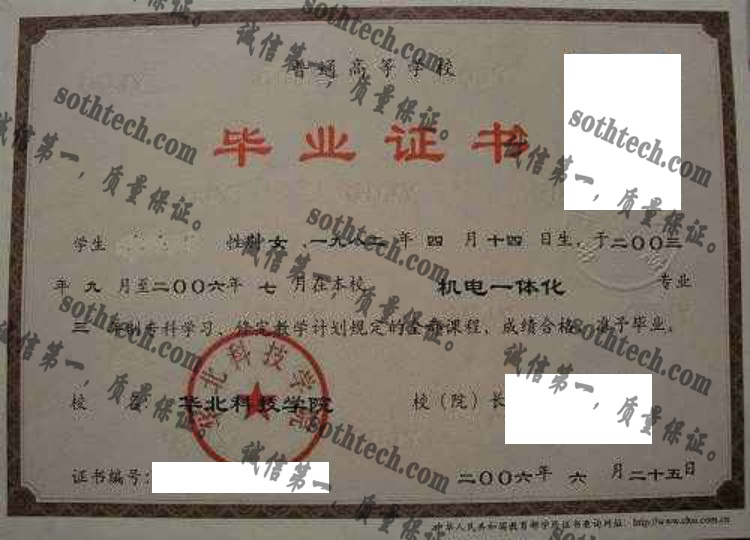 普通高等学校
毕业证书
学生 性别 女 、一九八二 年 四 月 十四 日生，于 二〇〇三
年 九 月至 二〇〇六 年 七 月在本校 机电一体化 专业
三 年制专科学习，修完教学计划规定的全部课程，成绩合格，准予毕业。
校 名： 华北科技学院 校（院）长
华北科技学院
证书编号： 二〇〇六 年 六 月 二十五 日
中华人民共和国教育部学历证书查询网址：http://www.chsi.com.cn
sothtech.com
诚信第一，质量保证。
sothtech.com
诚信第一，质量保证。
sothtech.com
诚信第一，质量保证。
sothtech.com
诚信第一，质量保证。
sothtech.com
诚信第一，质量保证。
sothtech.com
诚信第一，质量保证。
sothtech.com
诚信第一，质量保证。
sothtech.com